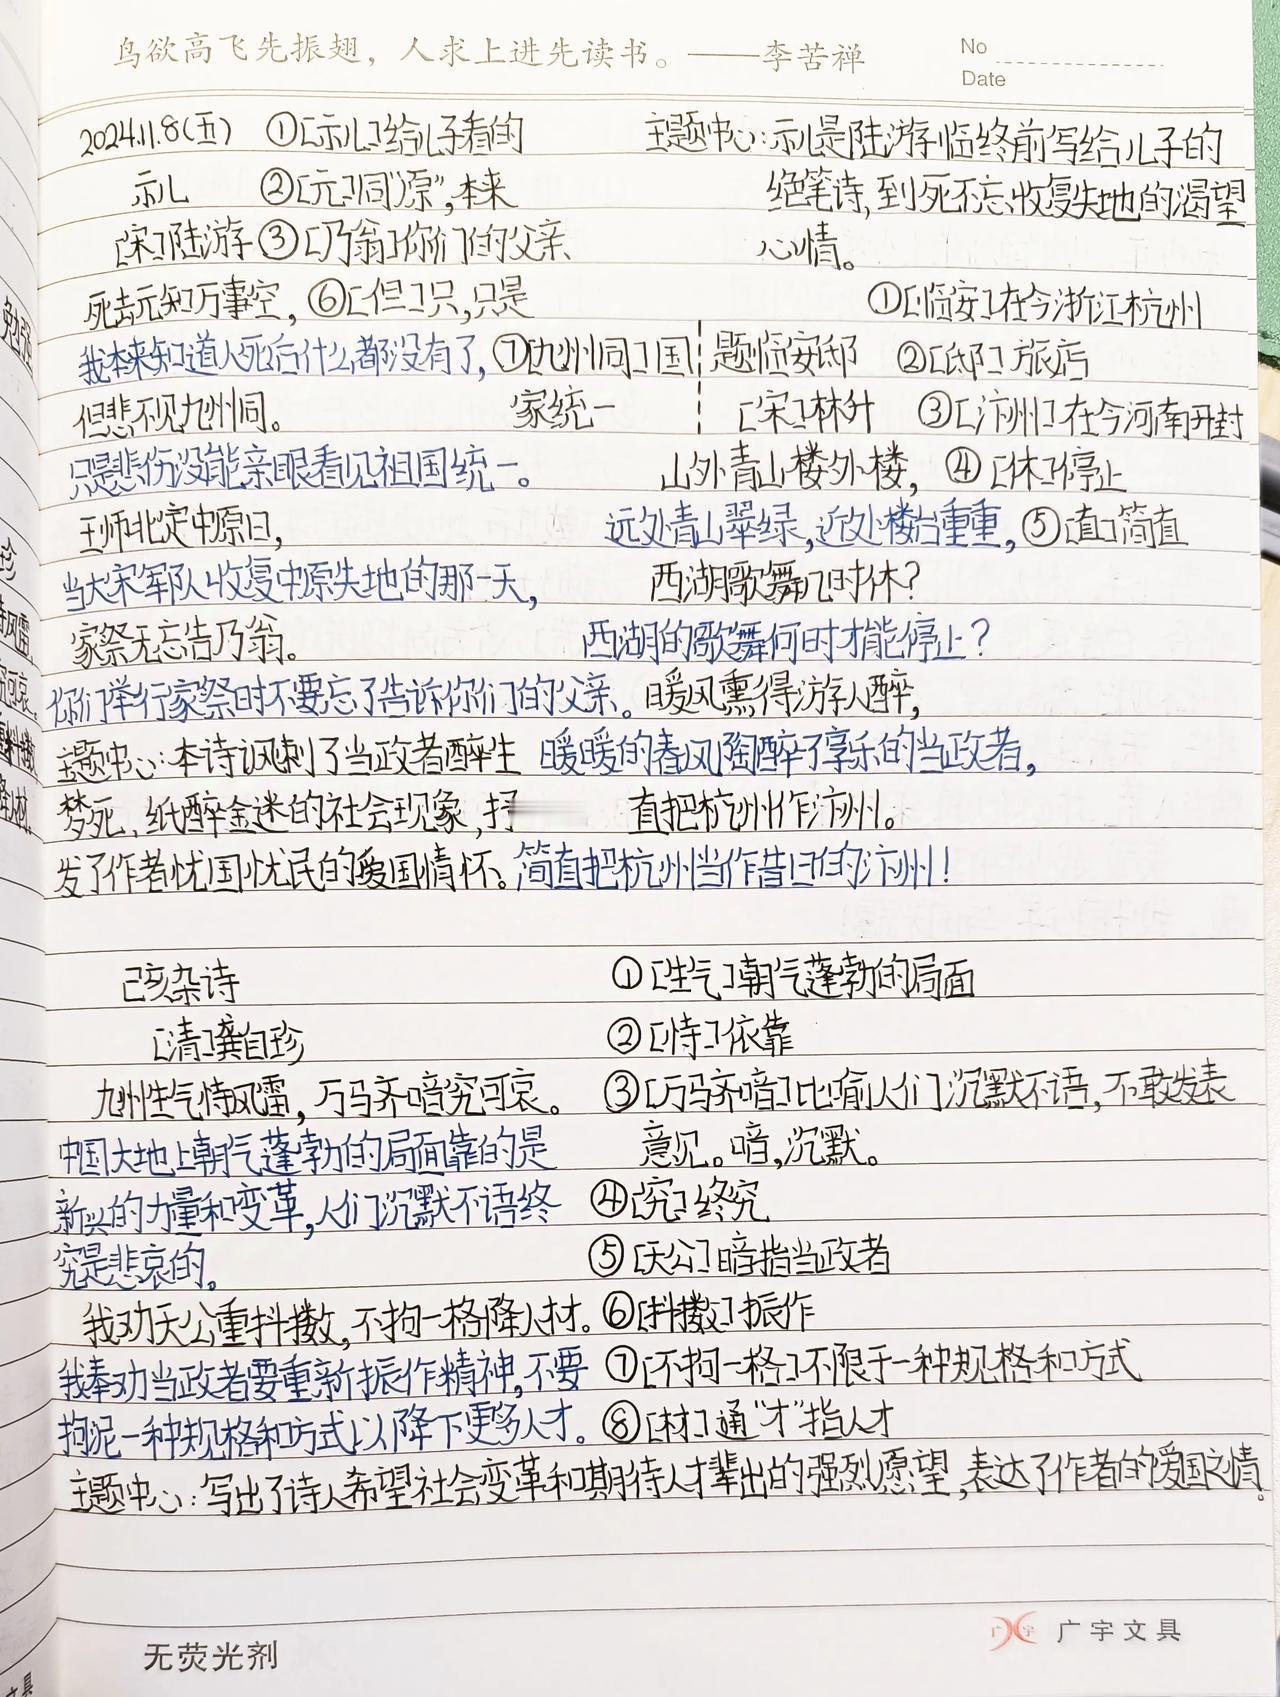 鸟欲高飞先振翅，人求上进先读书。——李苦禅
No
Date
2024.11.8(五) ①[示儿]给儿子看的
示儿 ②[元]同"原",本来
[宋]陆游 ③[乃翁]你们的父亲
主题中心:示儿是陆游临终前写给儿子的
绝笔诗,到死不忘收复失地的渴望
心情。
死去元知万事空, ⑥[但]只,只是
我本来知道人死后什么都没有了, ⑦[九州同]国
但悲不见九州同。 家统一
只是悲伤没能亲眼看见祖国统一。
王师北定中原日,
当大宋军队收复中原失地的那一天,
家祭无忘告乃翁。
你们举行家祭时不要忘了告诉你们的父亲。
①[临安]在今浙江杭州
题临安邸 ②[邸]旅店
[宋]林升 ③[汴州]在今河南开封
山外青山楼外楼, ④[休]停止
远处青山翠绿,近处楼台重重, ⑤[直]简直
西湖歌舞几时休?
西湖的歌舞何时才能停止?
暖风熏得游人醉,
暖暖的春风陶醉了享乐的当政者,
直把杭州作汴州。
简直把杭州当作昔日的汴州!
主题中心:本诗讽刺了当政者醉生
梦死,纸醉金迷的社会现象,抒
发了作者忧国忧民的爱国情怀。
己亥杂诗
[清]龚自珍
九州生气恃风雷, 万马齐喑究可哀。
中国大地上朝气蓬勃的局面靠的是
新兴的力量和变革,人们沉默不语终
究是悲哀的。
我劝天公重抖擞,不拘一格降人材。
我奉劝当政者要重新振作精神,不要
拘泥一种规格和方式以降下更多人才。
①[生气]朝气蓬勃的局面
②[恃]依靠
③[万马齐喑]比喻人们沉默不语,不敢发表
意见。喑,沉默。
④[究]终究
⑤[天公]暗指当政者
⑥[抖擞]振作
⑦[不拘一格]不限于一种规格和方式
⑧[材]通"才"指人才
主题中心:写出了诗人希望社会变革和期待人才辈出的强烈愿望,表达了作者的爱国之情。
无荧光剂
广宇文具